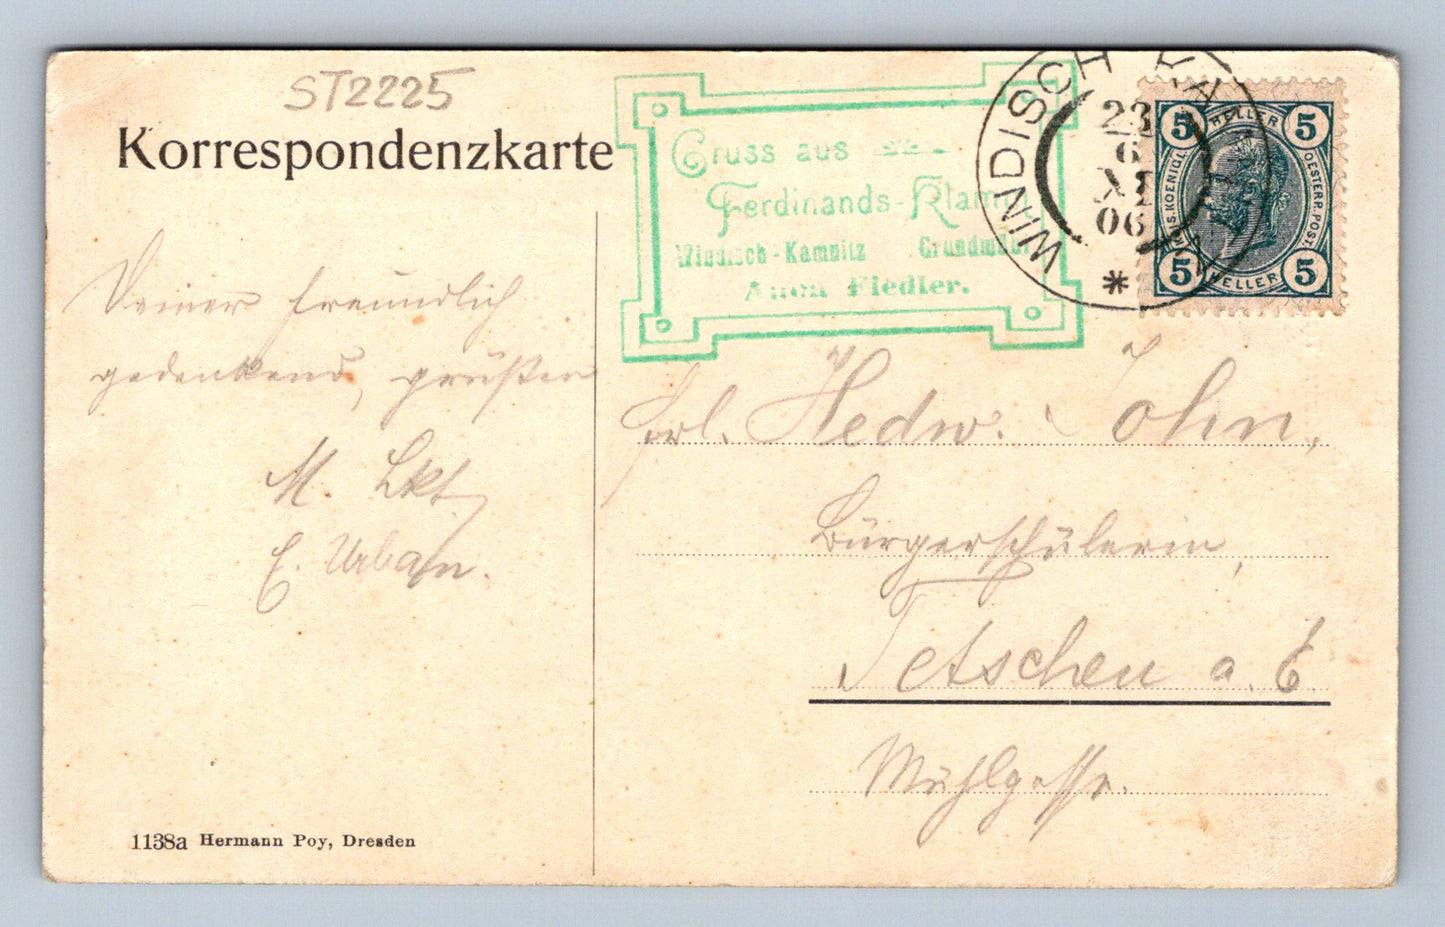 ST2225
Korrespondenzkarte
Gruss aus
Ferdinands-Klamm
Windisch-Kamnitz Grundmühle
Fiedler.
WINDISCH KA
23
6
XI
06
*
5 HELLER 5
KAIS. KOENIGL. OESTERR. POST
5 HELLER 5
Deiner freundlich
gedenkend, grüßen
M.
E. Urban.
Frl. Hedw. John,
Bürgerschülerin,
Tetschen a. E.
Mühlgasse.
1138a Hermann Poy, Dresden